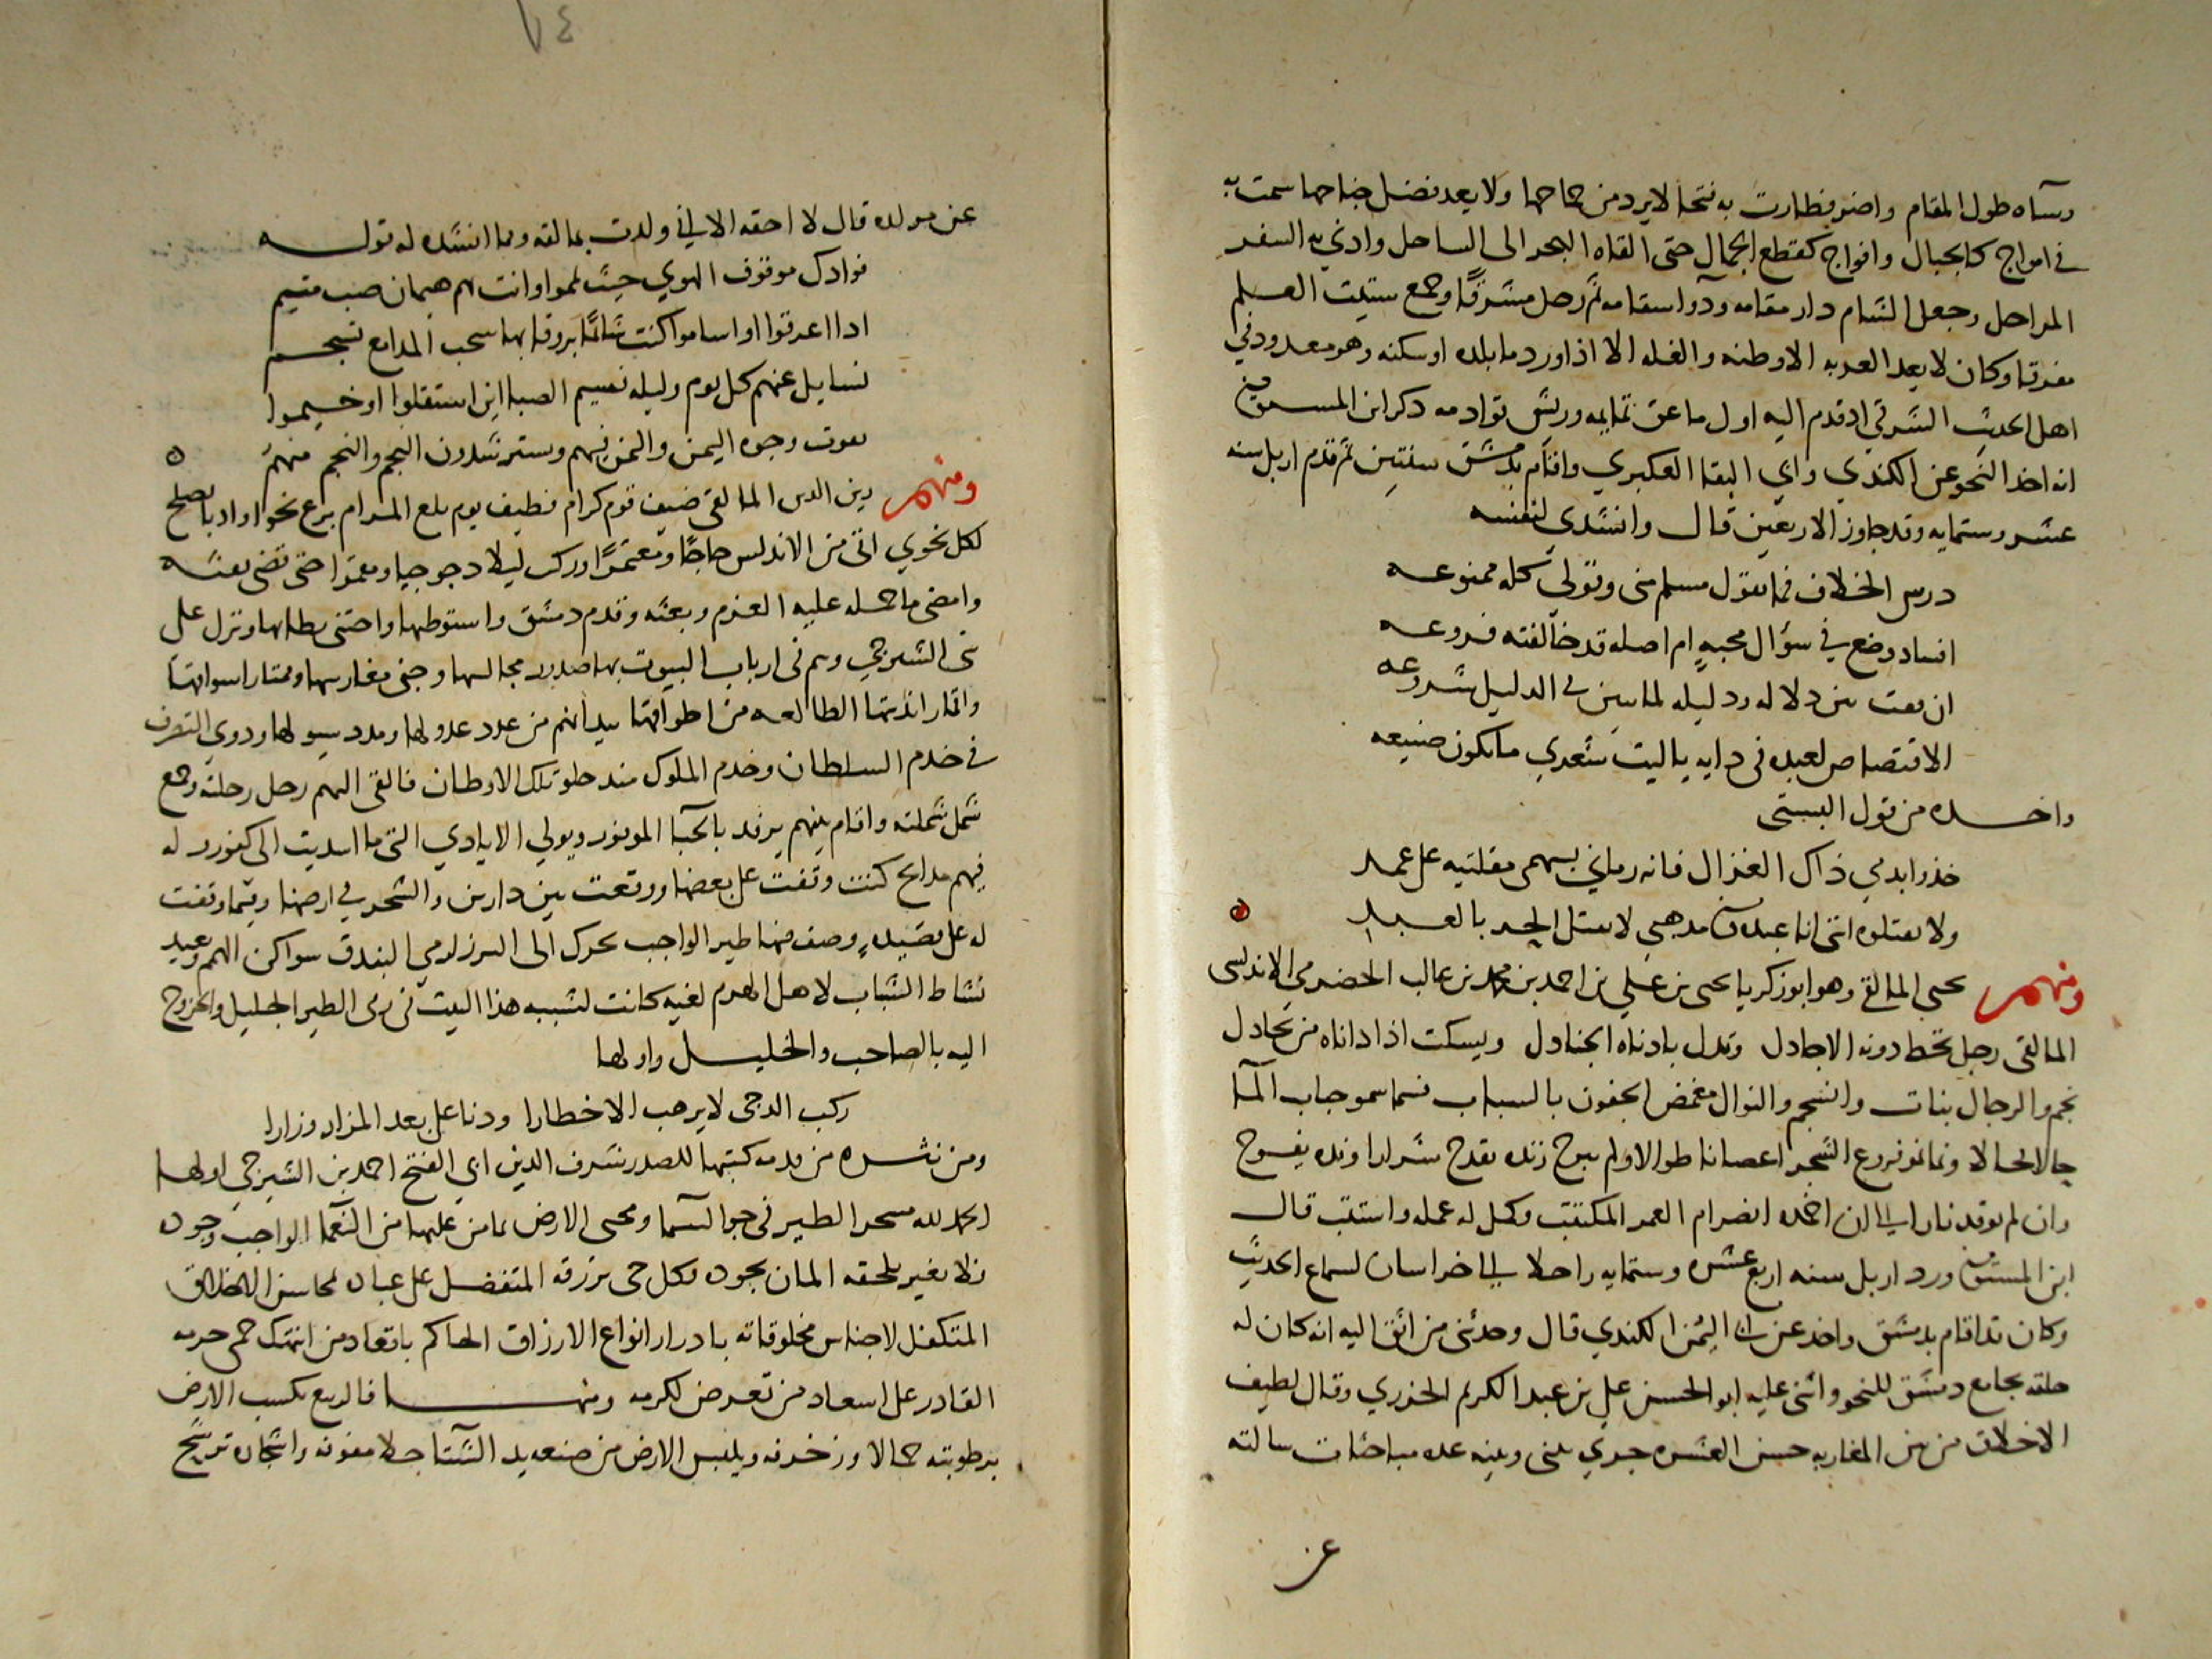 وسآه طول المقام واضو فطارت به فتخا لا يرد من جماحها ولا يعد فضل جناحها سمت به
في امواج كالجبال وافواج كقطع الجمال حتى القاه البحر الى الساحل وادني به السفر
المراحل وجعل الشام دار مقامه ودوا سقامه ثم رحل مشرقا وجمع ستيت العلم
مفرقا وكان لا يعد الغربه الا وطنه والفله الا اذا ورد ما بلده او سكنه وهو معدود في
اهل الحديث الشرقي اد قدم اليه اول ما عق تمايمه وريش قوادمه دكر ابن المستوفي
انه اخذ النحو عن الكندي وابي البقا العكبري واقام بدمشق سنتين ثم قدم اربل سنه
عشر وستمايه وقد جاوز الاربعين قال وانشدى لنفسه
درس الخلاف فما يقول مسلم منى وقولي كله ممنوعه
افساد وضع في سؤال محبه ام اصله قد خالفته فروعه
ان نعت من دلاله ود ليله لما تبين في الدليل شروعه
الا اقتصاص لعبده فى دايه ياليت شعري ما يكون صنيعه
واخده من قول البستى
خذوا بدمي ذاك الغزال فانه رماني بسهمى مقلتيه على عمد
ولا تقتلوه اننى انا عبده وفى مدهبي لا يقتل الحر بالعبد
ومنهم يحيى المالقي وهو ابو زكريا يحيى بن علي بن احمد بن محمد بن غالب الحضرمي الاندلسى
المالقى رجل تحط دونه الاجادل وتدل بادناه الجنادل ويسكت اذا داناه من تجادل
نجم والرجال بنات وانسجم والنوال مغمض الجفون بالسبات فسما سمو حباب المآ
حالا لحالا ونما نمو فروع الشجر اغصانا طوالا ولم يبرح زنده يقدح شرارا ونده يفوح
وان لم توقد نارا الى ان اخمده انضرام العمر المكتتب وكمل له عمله واستتب قال
ابن المستوفى ورد اربل سنه اربع عشره وستمايه راحلا الى خراسان لسماع الحديث
وكان قد اقام بدمشق واخد عن ابي اليمن الكندي قال وحدثنى من اثق اليه انه كان له
حلقه بجامع دمشق للنحو واثنى عليه ابو الحسن علي بن عبد الكريم الجزري وقال لطيف
الاخلاق من بين المغاربه حسن العشره جري بينى وبينه عده مباحثات سالته
عن
٧٤
عن مولده قال لا احقه الا اني ولدت بمالقه ومما انشده له قوله
فوادك موقوف الهوي حيث يمموا وانت بهم هيمان صب متيم
ادا اعرقوا او اسامو اكنت شائما بروقا بها سحب المدامع تسجم
نسايل عنهم كل يوم وليله نسيم الصبا اين استقلوا او خيموا
يعوت وجوه اليمن واليمن فيهم ويسترشدون النجم والنجم منهم
ومنهم زين الدين المالقى ضيف قوم كرام وطيف يوم بلغ المرام برع نحوا وادبا يصلح
لكل نحوي اتى من الاندلس حاجا ومعتمرا وركب ليلا دجوجيا ومقمرا حتى قضى تفثه
وامضى ما حمله عليه العزم وبعثه وقدم دمشق واستوطنها واجتنى بطلالها ونزل على
بنى الشيرجي وهم فى ارباب البيوت بها صدور مجالسها وجنى مغارسها وممتار اسواقها
واقمار انديتها الطالعه من اطواقها بيد انهم من عدد عدولها ومدد سيولها وذوي التصرف
في خدم السلطان وخدم الملوك منذ حلو تلك الاوطان فالقى اليهم رحل رحلته وجمع
شمل شملته واقام بينهم يرفد بالحبآ الموفور ويولي الايادي التى ما اسديت الى كفور وله
فيهم مدايح كنت وقفت على بعضها ورتعت بين دارين والشحر في ارضها ومما وقفت
له على قصيده وصف فيها طير الواجب تحرك الى البرز لرمي البندق سواكن الهمم وتعيد
نشاط الشباب لاهل الهرم لغيه كانت لنسبه هذا البيت فى رمى الطير الجليل والخروج
اليه بالصاحب والخليل واولها
ركب الدجى لا يرهب الاخطارا ودنا على بعد المزار وزارا
ومن نثره من قدمه كتبها للصدر شرف الدين ابي الفتح احمد بن الشيرجي اولها
الحمد لله مسخر الطير فى جو السمآ ومحيى الارض بما من عليها من النعما الواجب وجوده
فلا تغير يلحقه المان بجوده فكل حى يرزقه المتفضل على عباده بمحاسن الاخلاق
المتكفل لاجناس مخلوقاته بادرار انواع الارزاق الحاكم بابعاد من انتهك حمى حرمه
القادر على اسعاد من تعرض لكرمه ومنها فالربيع يكسب الارض
برطوبته جمالا وزخرفه ويلبس الارض من صنعه يد الشتا حلا مفوفه واشجاره ترنح